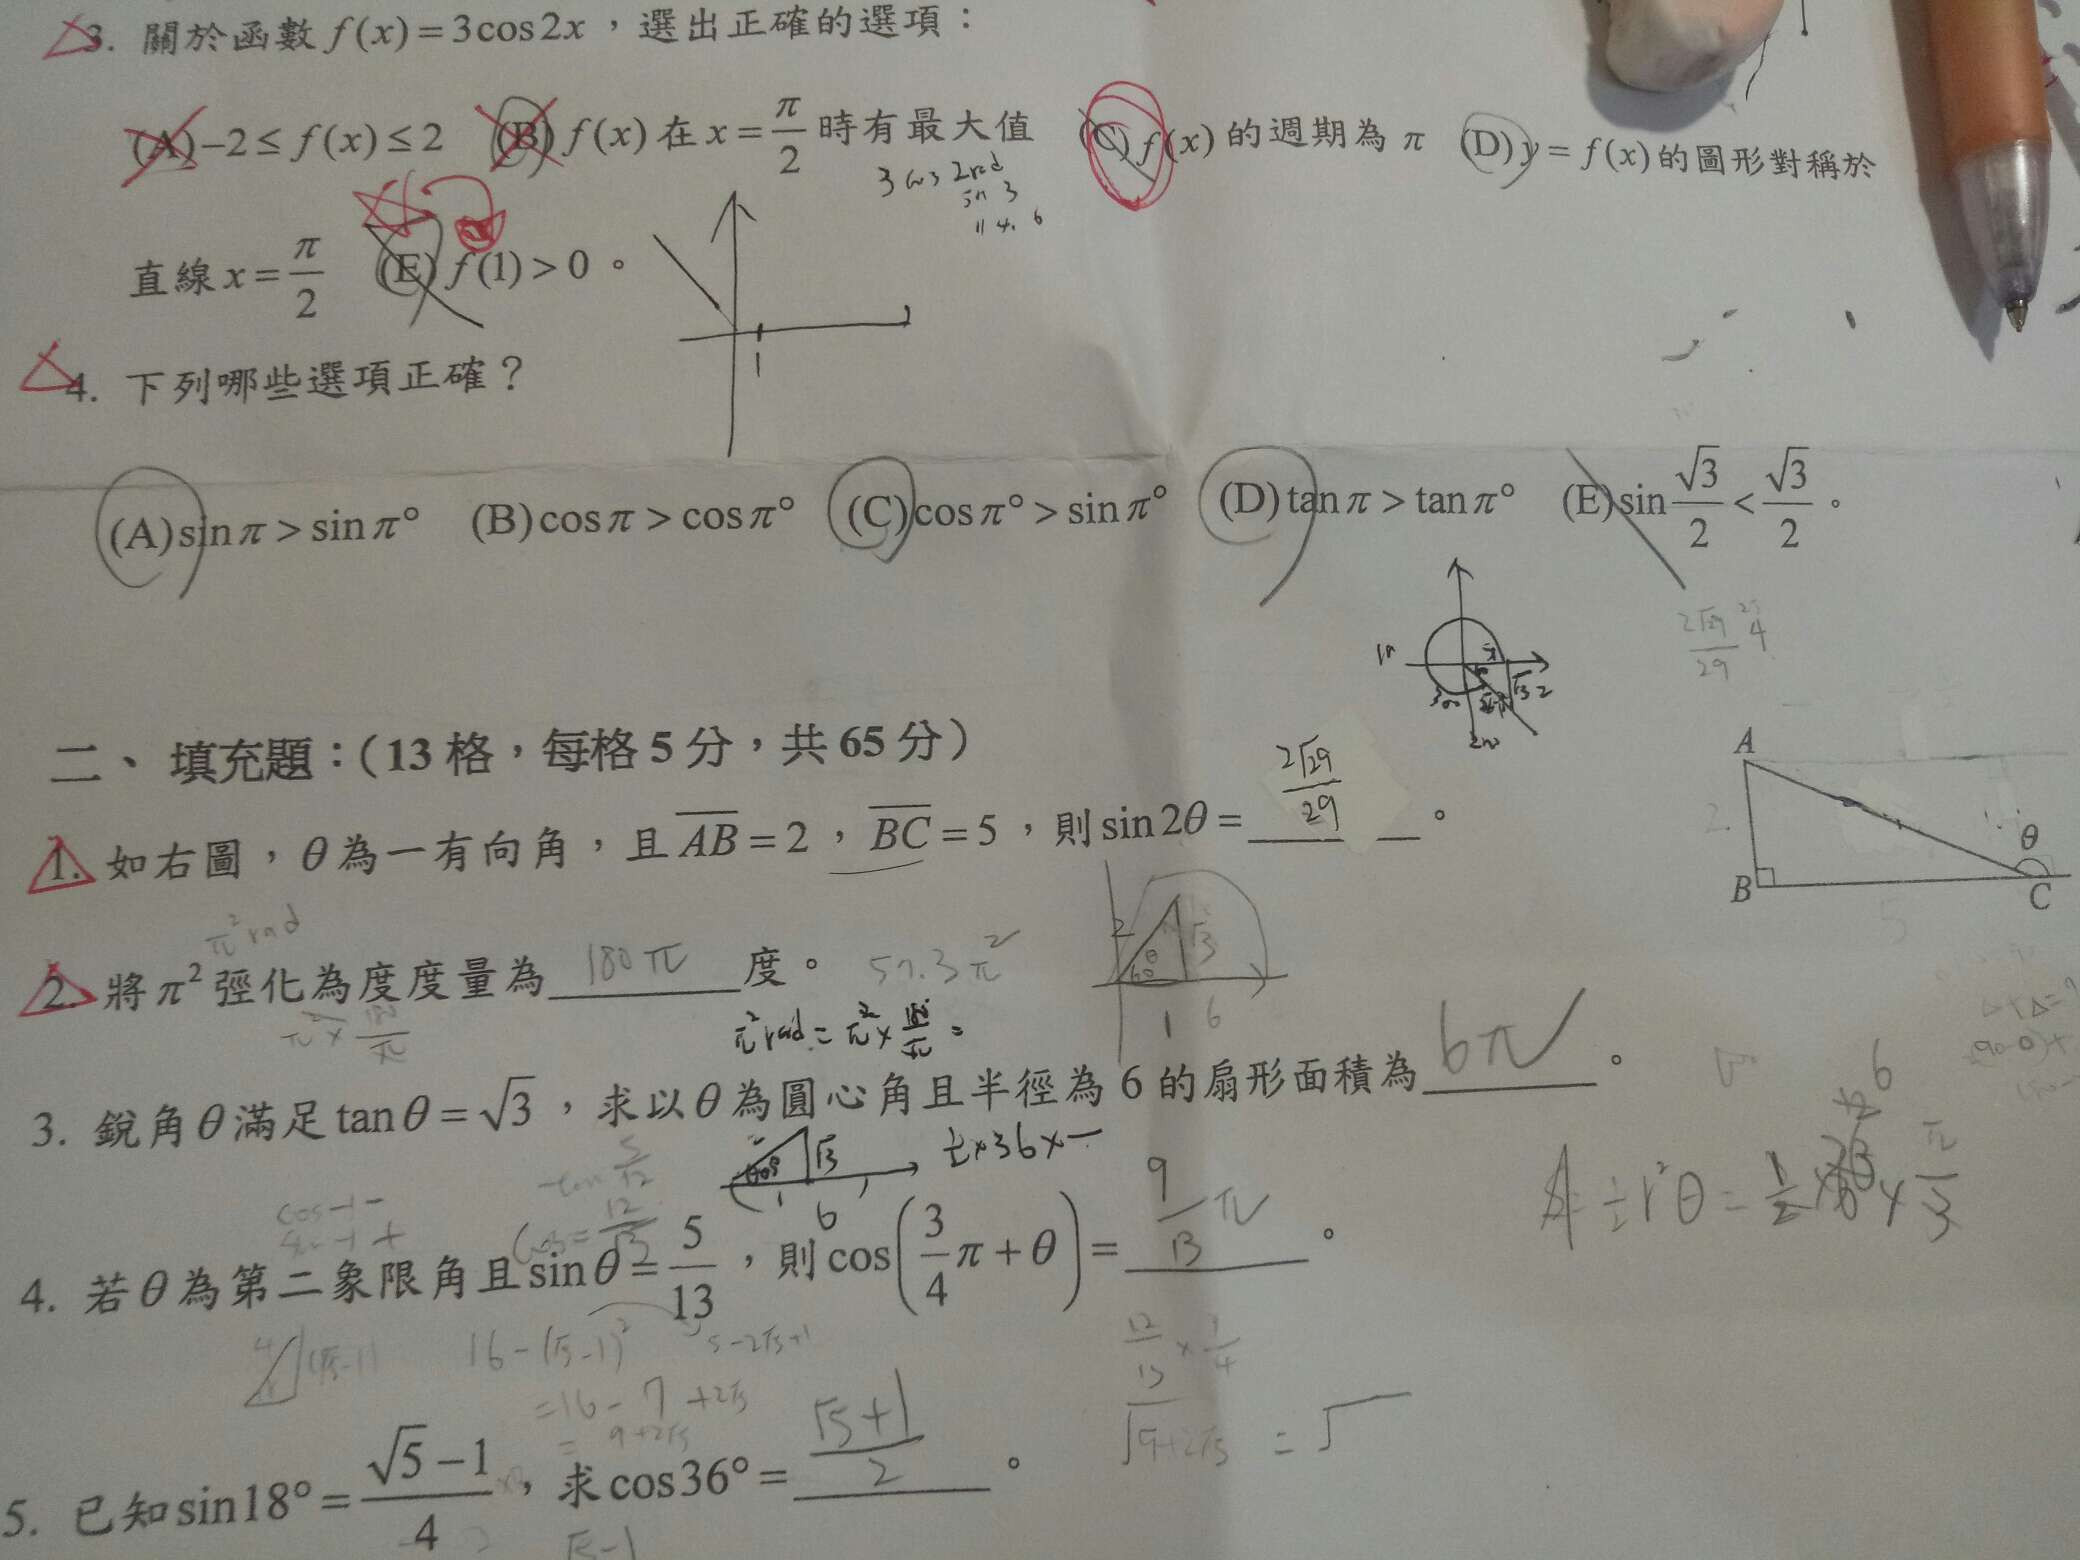 3. 關於函數 f(x)=3cos2x，選出正確的選項：
(A)−2≤f(x)≤2 (B)f(x)在x=π/2時有最大值 (C)f(x)的週期為π (D)y=f(x)的圖形對稱於
3 cos 2rad
114.6
直線x=π/2 (E)f(1)>0。
1
4. 下列哪些選項正確？
(A)sinπ>sinπ° (B)cosπ>cosπ° (C)cosπ°>sinπ° (D)tanπ>tanπ° (E)sin √3/2 < √3/2。
2√29/29
二、填充題：(13格，每格5分，共65分)
1. 如右圖，θ為一有向角，且AB=2，BC=5，則sin2θ= 2√29/29 。
A
B
C
θ
2
π² rad
2. 將π²弳化為度度量為 180π 度。 57.3π²
π² × 180/π
π² rad = π² × 180°/π =
2 √3 θ 60° 1 6
3. 銳角θ滿足tanθ=√3，求以θ為圓心角且半徑為6的扇形面積為 6π 。
√3 1 6
½×36×
A = ½r²θ = ½ × 36 × π/3
tan 5/12
cos = 12/13
4. 若θ為第二象限角且sinθ=5/13，則cos(3/4π+θ)= 9/13 π 。
4 (√5−1) 16−(√5−1)² 5−2√5+1
=16−7+2√5
= 9+2√5
√9+2√5 = √
5. 已知sin18°=(√5−1)/4，求cos36°= (√5+1)/2 。
√5−1